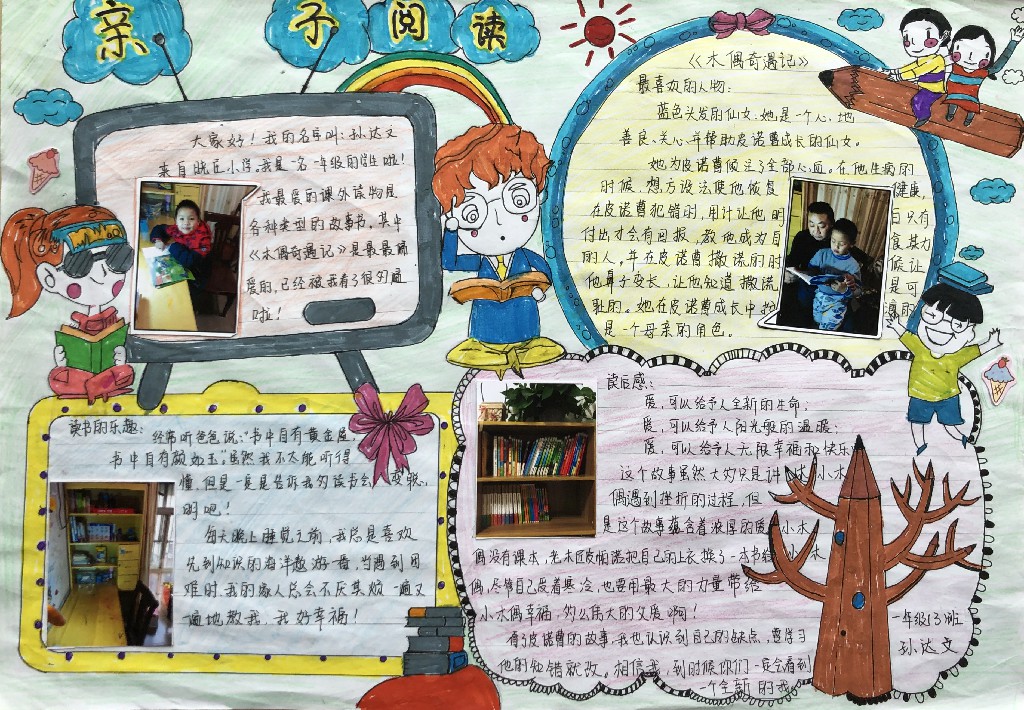 亲子阅读
大家好！我的名字叫：孙达文
小学。我是一名一年级的学生啦！
我最爱的课外读物是
各种类型的故事书，其中
《木偶奇遇记》是最最最
爱的，已经被我看了很多遍
啦！
《木偶奇遇记》
最喜欢的人物：
蓝色头发的仙女：她是一个心地
善良、关心并帮助皮诺曹成长的仙女。
她为皮诺曹倾注了全部心血。在他生病的
时候，想方设法使他恢复健康，
在皮诺曹犯错时，用计让他明白只有
付出才会有回报，教他成为自食其力
的人，并在皮诺曹撒谎的时候让
他鼻子变长，让他知道撒谎是可
耻的。她在皮诺曹成长中扮演的
是一个母亲的角色。
读书的乐趣：
经常听爸爸说：“书中自有黄金屋，
书中自有颜如玉”，虽然我不太能听得
懂，但是一定是告诉我多读书会变聪
明吧！
每天晚上睡觉之前，我总是喜欢
先到知识的海洋遨游一番，当遇到困
难时，我的家人总会不厌其烦一遍又
一遍地教我，我好幸福！
读后感：
爱，可以给予人全新的生命；
爱，可以给予人阳光般的温暖；
爱，可以给予人无限幸福和快乐
这个故事虽然大多只是讲述小木
偶遇到挫折的过程，但
是这个故事蕴含着浓厚的小木
偶没有课本，老木匠皮帕诺把自己的上衣换了一本书给小木
偶，尽管自己受着寒冷，也要用最大的力量带给
小木偶幸福，多么伟大的父爱啊！
看了皮诺曹的故事，我也认识到自己的缺点，要学习
他的知错就改。相信我，到时候你们一定会看到
一个全新的我
一年级13班
孙达文